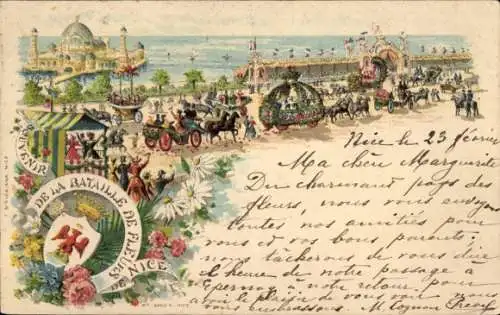 SOUVENIR
DE LA BATAILLE DE FLEURS
DE NICE
Nice le 23 février
Ma chère Marguerite
Du charmant pays des
fleurs, nous vous envoyons
toutes nos amitiés pour
vous et vos bons parents;
nous tâcherons de vous dire
l'heure de notre passage à
Epernay à notre retour, pour
avoir le plaisir de vous voir nous
vous embrassons M.